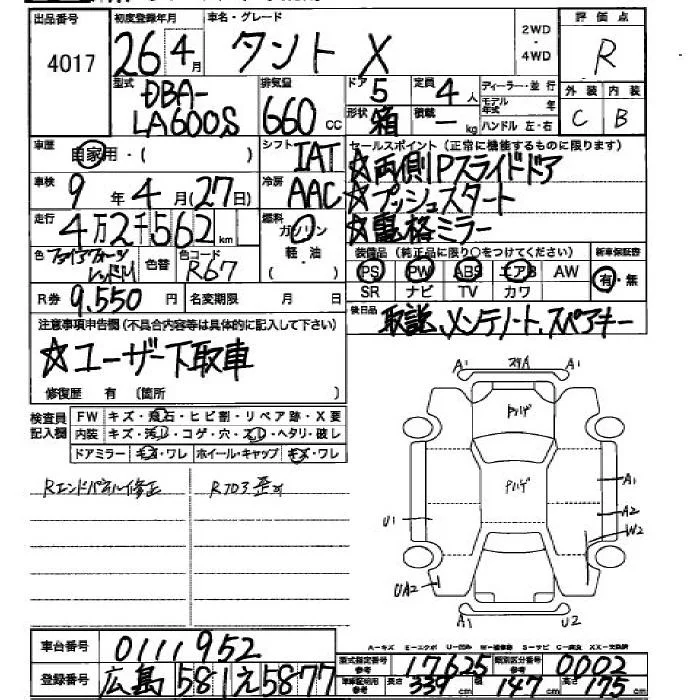 出品番号 初度登録年月 車名・グレード 2WD・4WD 評価点
4017 26年4月 タント X R
型式 DBA-LA600S 排気量 660cc ドア 5 定員 4人 ディーラー・並行 外装 内装
形状 箱 積載 ー kg モデル年式 年 ハンドル 左・右 C B
車歴 自家用・( ) シフト IAT セールスポイント(正常に機能するものに限ります)
車検 9年4月(27日) 冷房 AAC ☆両側Pスライドドア
☆プッシュスタート
走行 4万2千562km 燃料 ガソリン 軽油 ( ) ☆電格ミラー
色 色替 色コード R67 装備品(純正品に限り○をつけてください) 新車保証書
PS PW ABS エアB AW 有・無
R券 9,550円 名変期限 月 日 SR ナビ TV カワ
注意事項申告欄(不具合内容等は具体的に記入して下さい) 後日品 取説、メンテノート、スペアキー
☆ユーザー下取車
修復歴 有 〔箇所 〕
検査員記入欄 FW キズ・飛石・ヒビ割・リペア跡・X要
内装 キズ・汚レ・コゲ・穴・スレ・ヘタリ・破レ
ドアミラー キズ・ワレ ホイール・キャップ キズ・ワレ
Rエンドパネル修正 Rフロア歪み
A1 スリA A1
A1
A2
U1 W2
UA2
A1 U2
A-キズ E-エクボ U-凹み W-補修跡 S-サビ C-腐食 XX-交換済
車台番号 0111952 型式指定番号 参考 17625 類別区分番号 参考 0002
登録番号 広島 581 え 5877 車庫証明用参考 長さ 339cm 幅 147cm 高さ 175cm